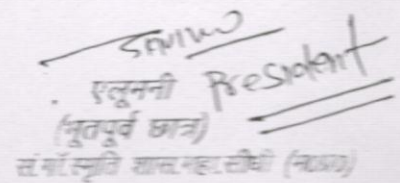 एलूमनी President
(भूतपूर्व छात्र)
सं. गाँ. स्मृति शास. महा. सीधी (म०प्र०)